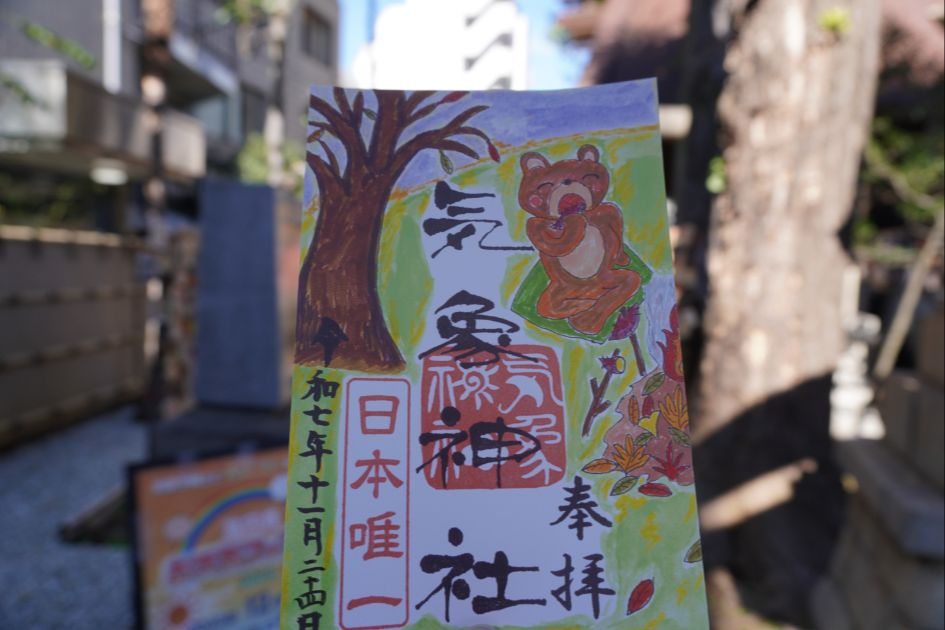 奉拝
気象神社
気象神社
日本唯一
令和七年十一月二十四日